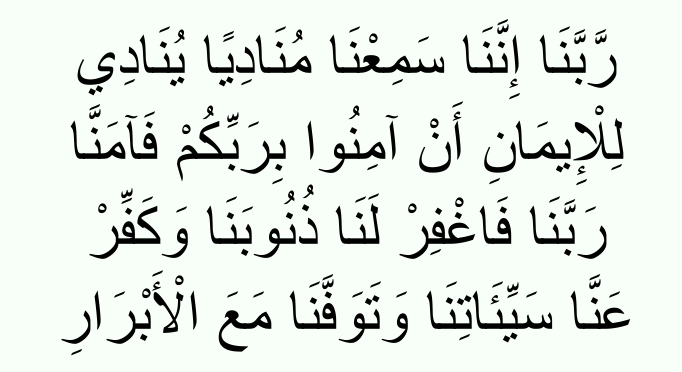 رَّبَّنَا إِنَّنَا سَمِعْنَا مُنَادِيًا يُنَادِي
لِلْإِيمَانِ أَنْ آمِنُوا بِرَبِّكُمْ فَآمَنَّا
رَبَّنَا فَاغْفِرْ لَنَا ذُنُوبَنَا وَكَفِّرْ
عَنَّا سَيِّئَاتِنَا وَتَوَفَّنَا مَعَ الْأَبْرَارِ